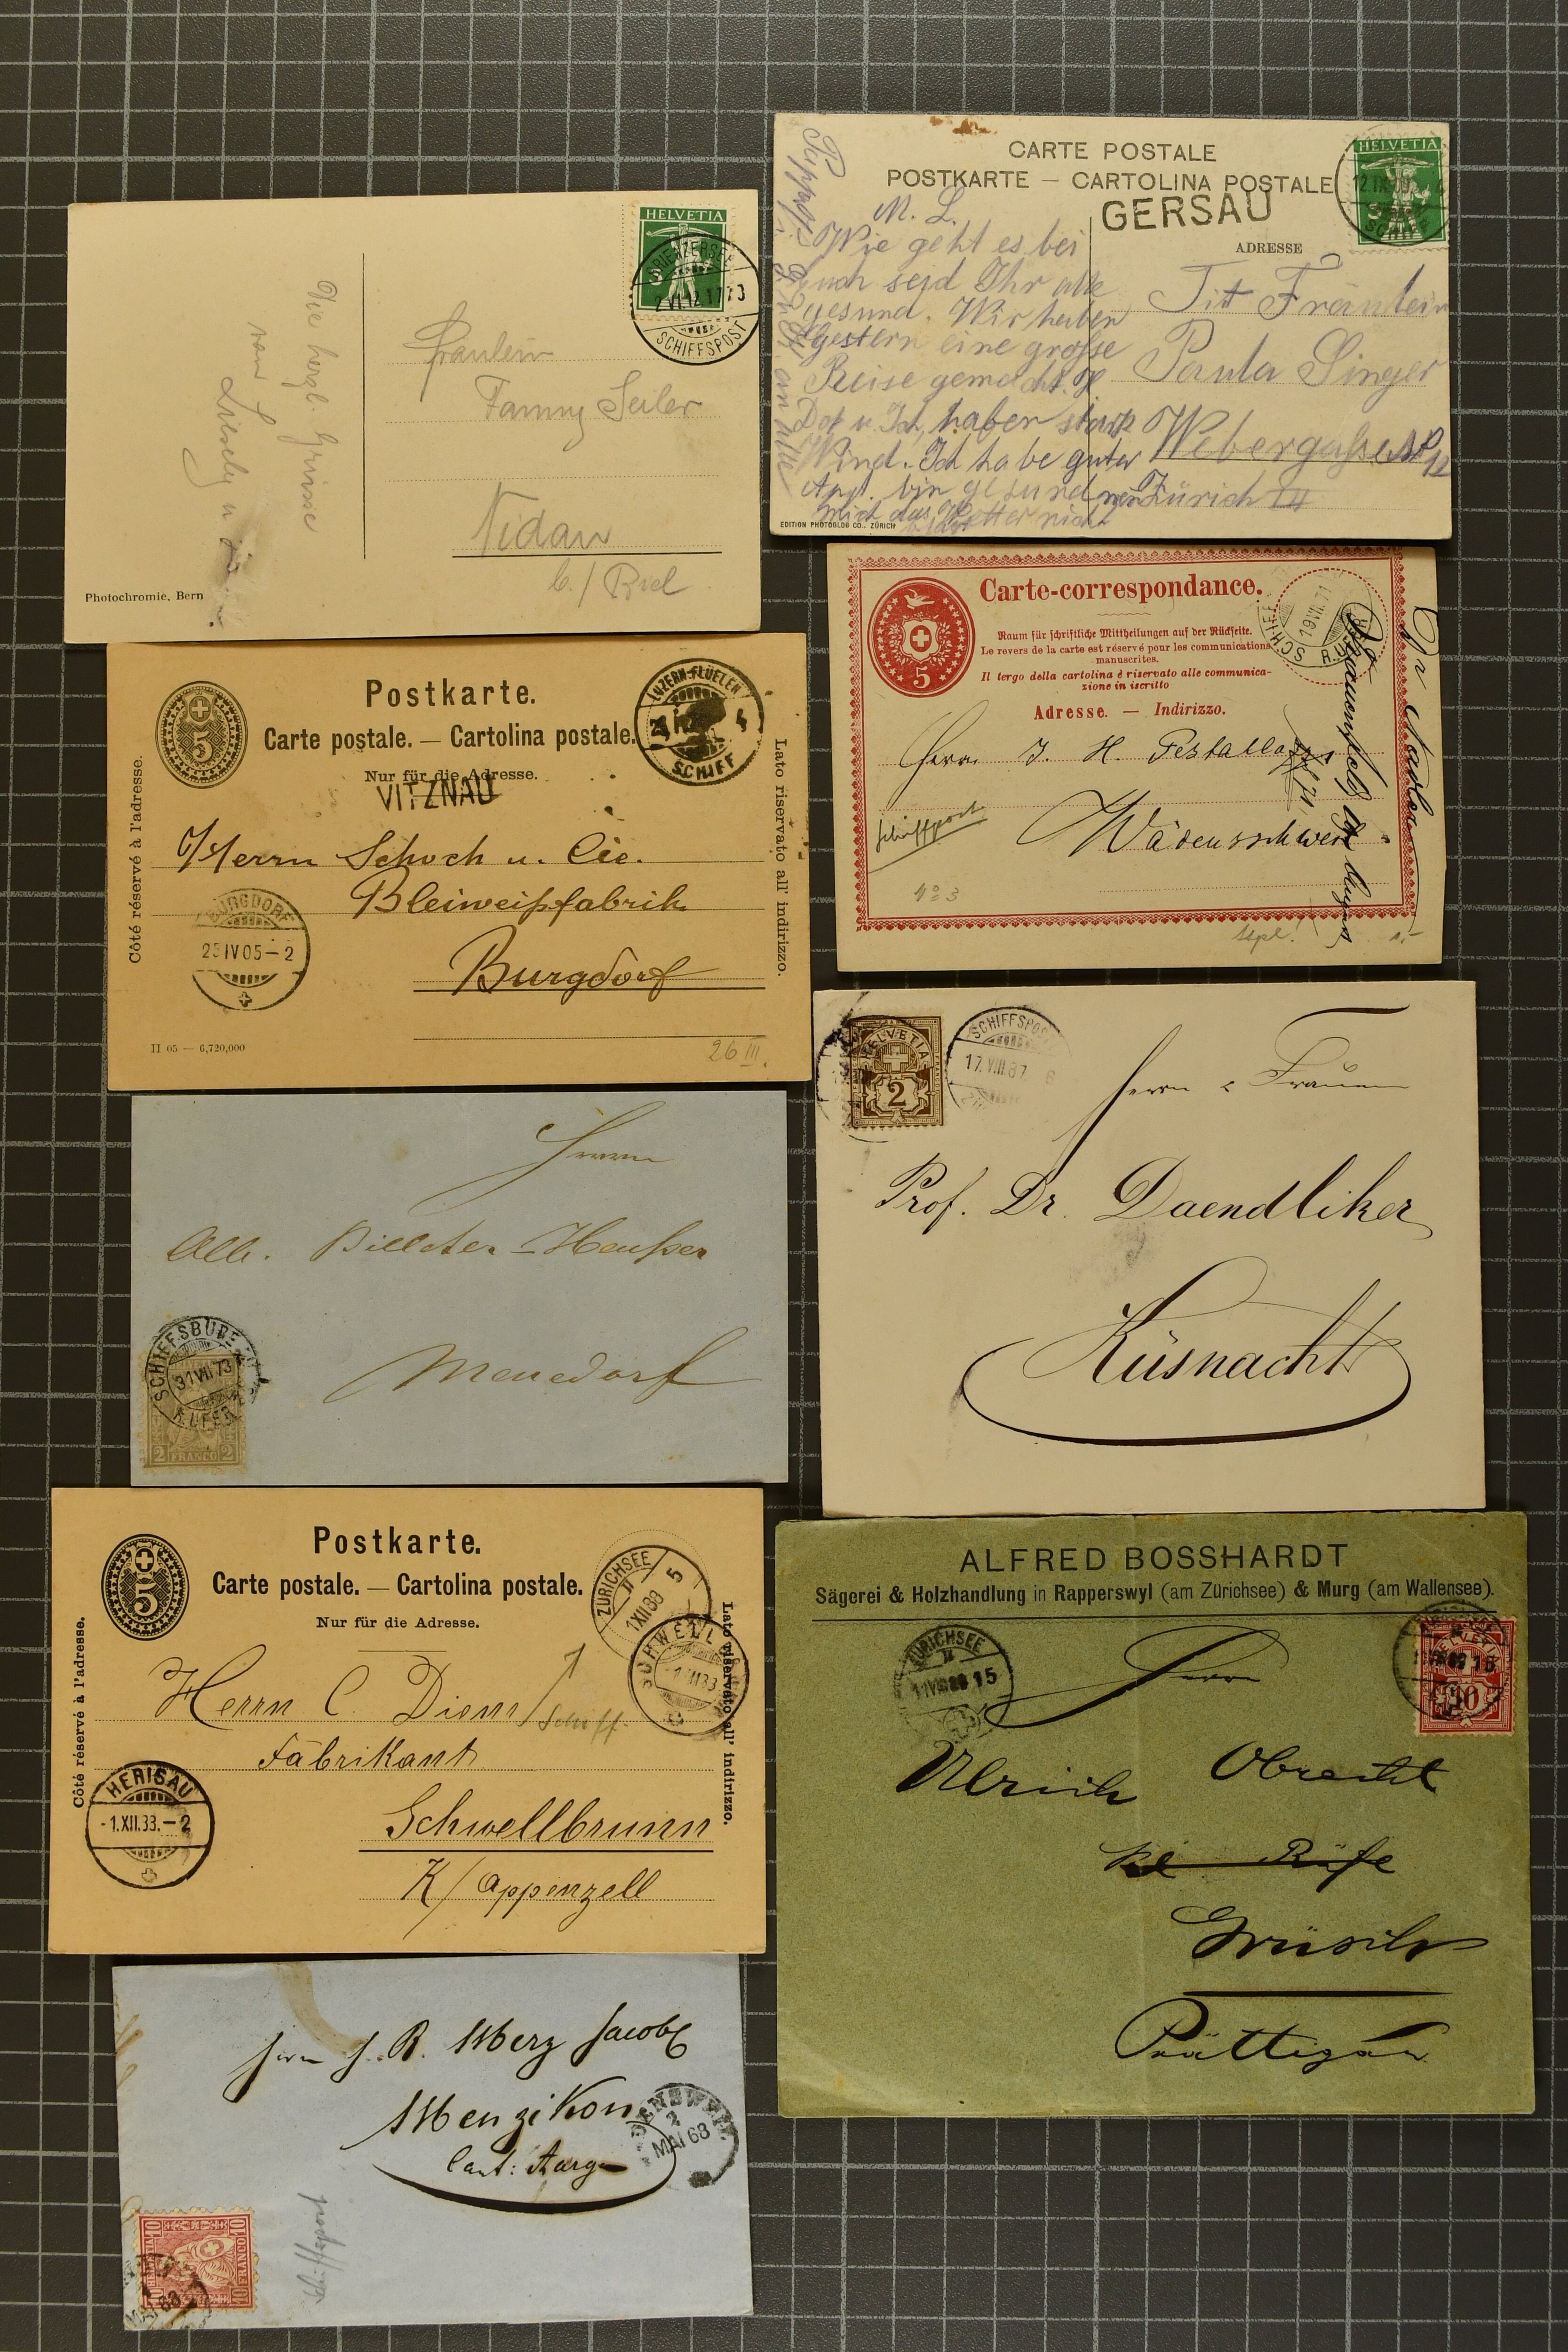 HELVETIA
5
BRIENZERSEE
2.VI.12.17
SCHIFFSPOST
Die herzl. Grüsse
von
Fräulein
Fanny Seiler
Nidau
b./Biel
Photochromie, Bern
CARTE POSTALE
POSTKARTE — CARTOLINA POSTALE
GERSAU
ADRESSE
HELVETIA
5
12.IX
SCHIFF
M. L.
Wie geht es bei
euch seid Ihr alle
gesund. Wir haben
gestern eine grosse
Reise gemacht.
haben stark
Wind. Ich habe guten
Apt. bin gesund
mich das Wetter nicht
Tit Fräulein
Paula Singer
Webergasse
Zürich
EDITION PHOTOGLOB CO., ZÜRICH
Postkarte.
Carte postale. — Cartolina postale.
Nur für die Adresse.
5
VITZNAU
LUZERN-FLÜELEN
SCHIFF
Côté réservé à l'adresse.
Lato riservato all' indirizzo.
Herrn Schoch u. Cie.
Bleiweißfabrik
Burgdorf
BURGDORF
25 IV 05 – 2
II 05 — 6,720,000
26 III.
Carte-correspondance.
5
Raum für schriftliche Mittheilungen auf der Rückseite.
Le revers de la carte est réservé pour les communications
manuscrites.
Il tergo della cartolina è riservato alle communica-
zione in iscritto
Adresse. — Indirizzo.
19 VII 71
Herrn J. H. Pestalozzi
Schiffpost
Wädensschweil
SCHIFFSPOST
17.VIII.87
HELVETIA
2
Herrn & Frauen
Prof. Dr. Daendliker
Küsnacht
Herrn
Alb. Billeter-Heußer
Menedorf
SCHIFFSBUREAU
31 VII 73
2 FRANCO 2
Postkarte.
Carte postale. — Cartolina postale.
Nur für die Adresse.
5
ZÜRICHSEE
II
1 XII 88 5
Côté réservé à l'adresse.
Lato riservato all' indirizzo.
Herrn C. Diem
Schiff
Fabrikant
Schwellbrunn
K/ Appenzell
HERISAU
-1.XII.88.-2
ALFRED BOSSHARDT
Sägerei & Holzhandlung in Rapperswyl (am Zürichsee) & Murg (am Wallensee).
ZÜRICHSEE
II
15
HELVETIA
10
Herrn
Ulrich Obrecht
Grüsch
Prättigau
Herrn J. R. Merz Jacobs
Menzikon
Cant: Aargau
2
MAI 68
10
FRANCO
10